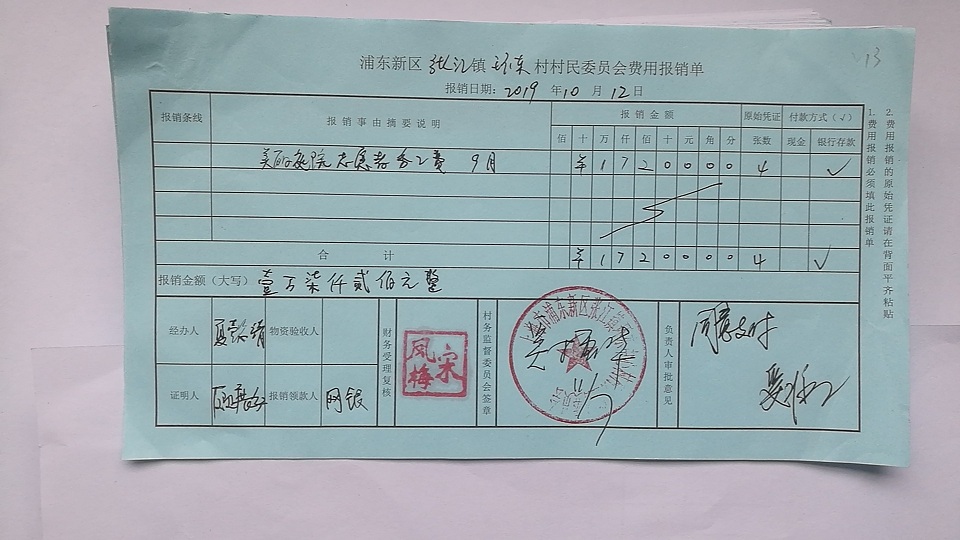 13
浦东新区 张江 镇 环东 村村民委员会费用报销单
报销日期: 2019 年 10 月 12 日
报销条线 报销事由摘要说明 报销金额 原始凭证 付款方式(√)
佰 十 万 仟 佰 十 元 角 分 张数 现金 银行存款
美丽庭院志愿者务工费 9月 ¥ 1 7 2 0 0 0 0 4 √
合计 ¥ 1 7 2 0 0 0 0 4 √
报销金额(大写) 壹万柒仟贰佰元整
经办人 物资验收人
证明人 报销领款人 网银
财务受理复核
宋风梅
村务监督委员会签章
负责人审批意见
同意支付
1.费用报销必须填此报销单
2.费用报销的原始凭证请在背面平齐粘贴